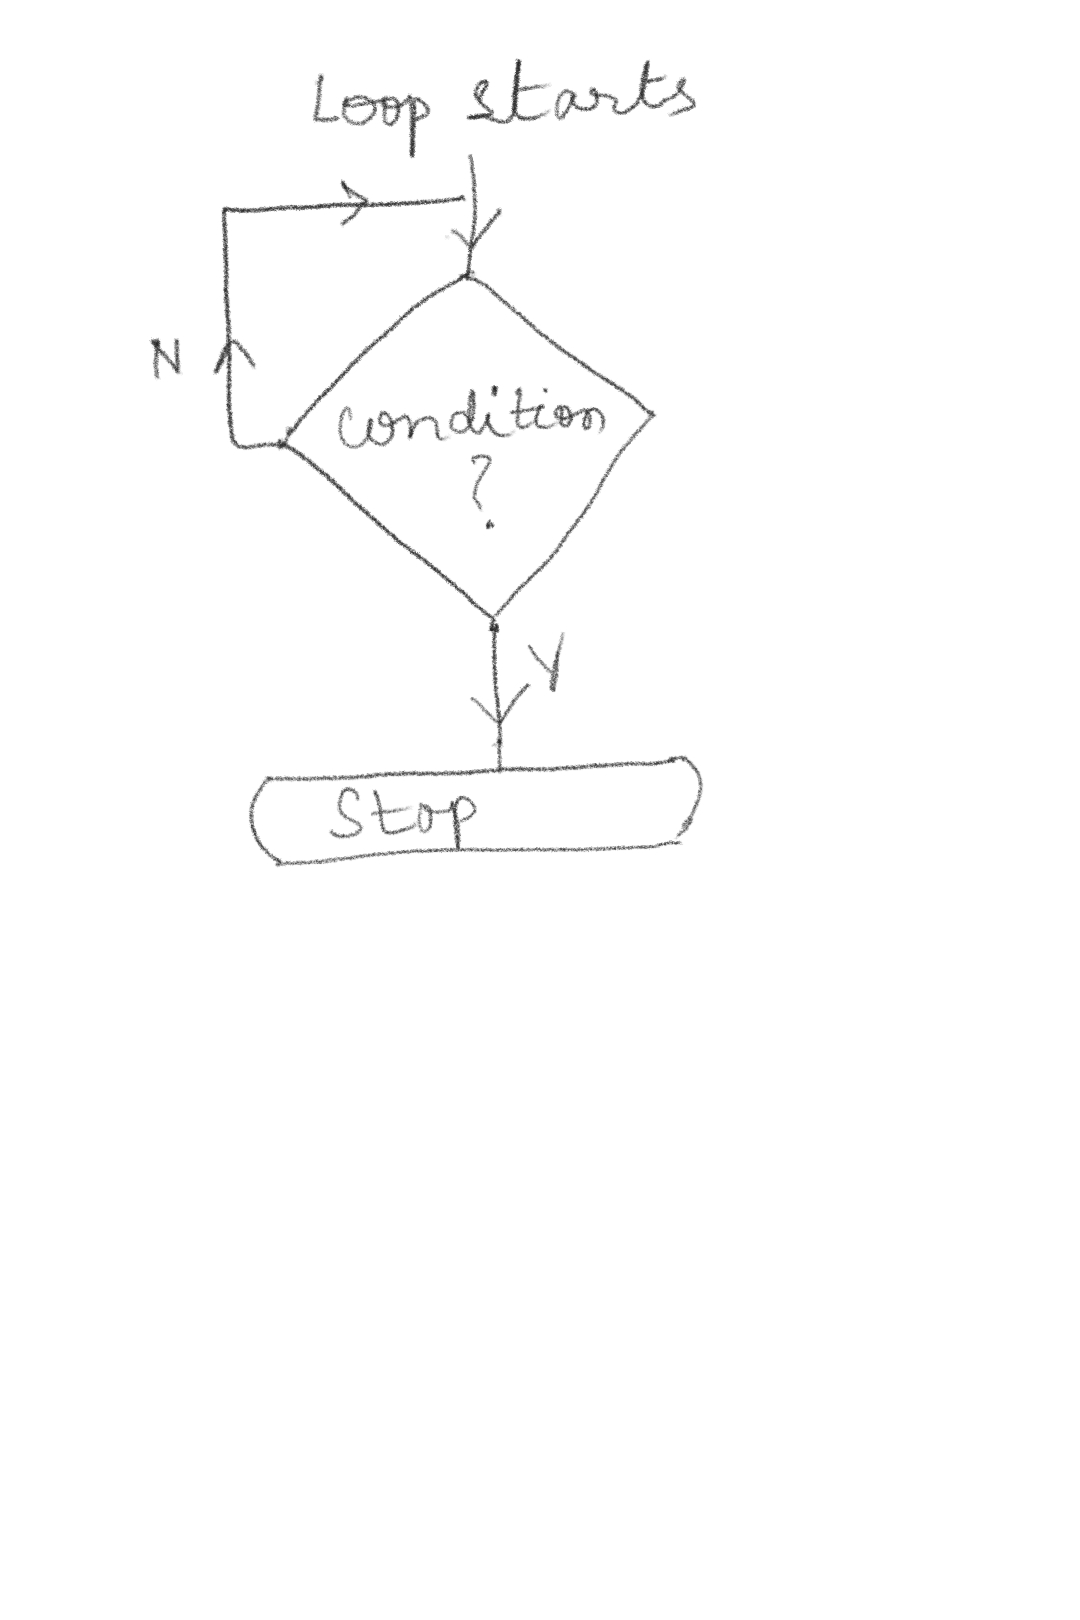 Loop starts
N
condition
?
Y
Stop